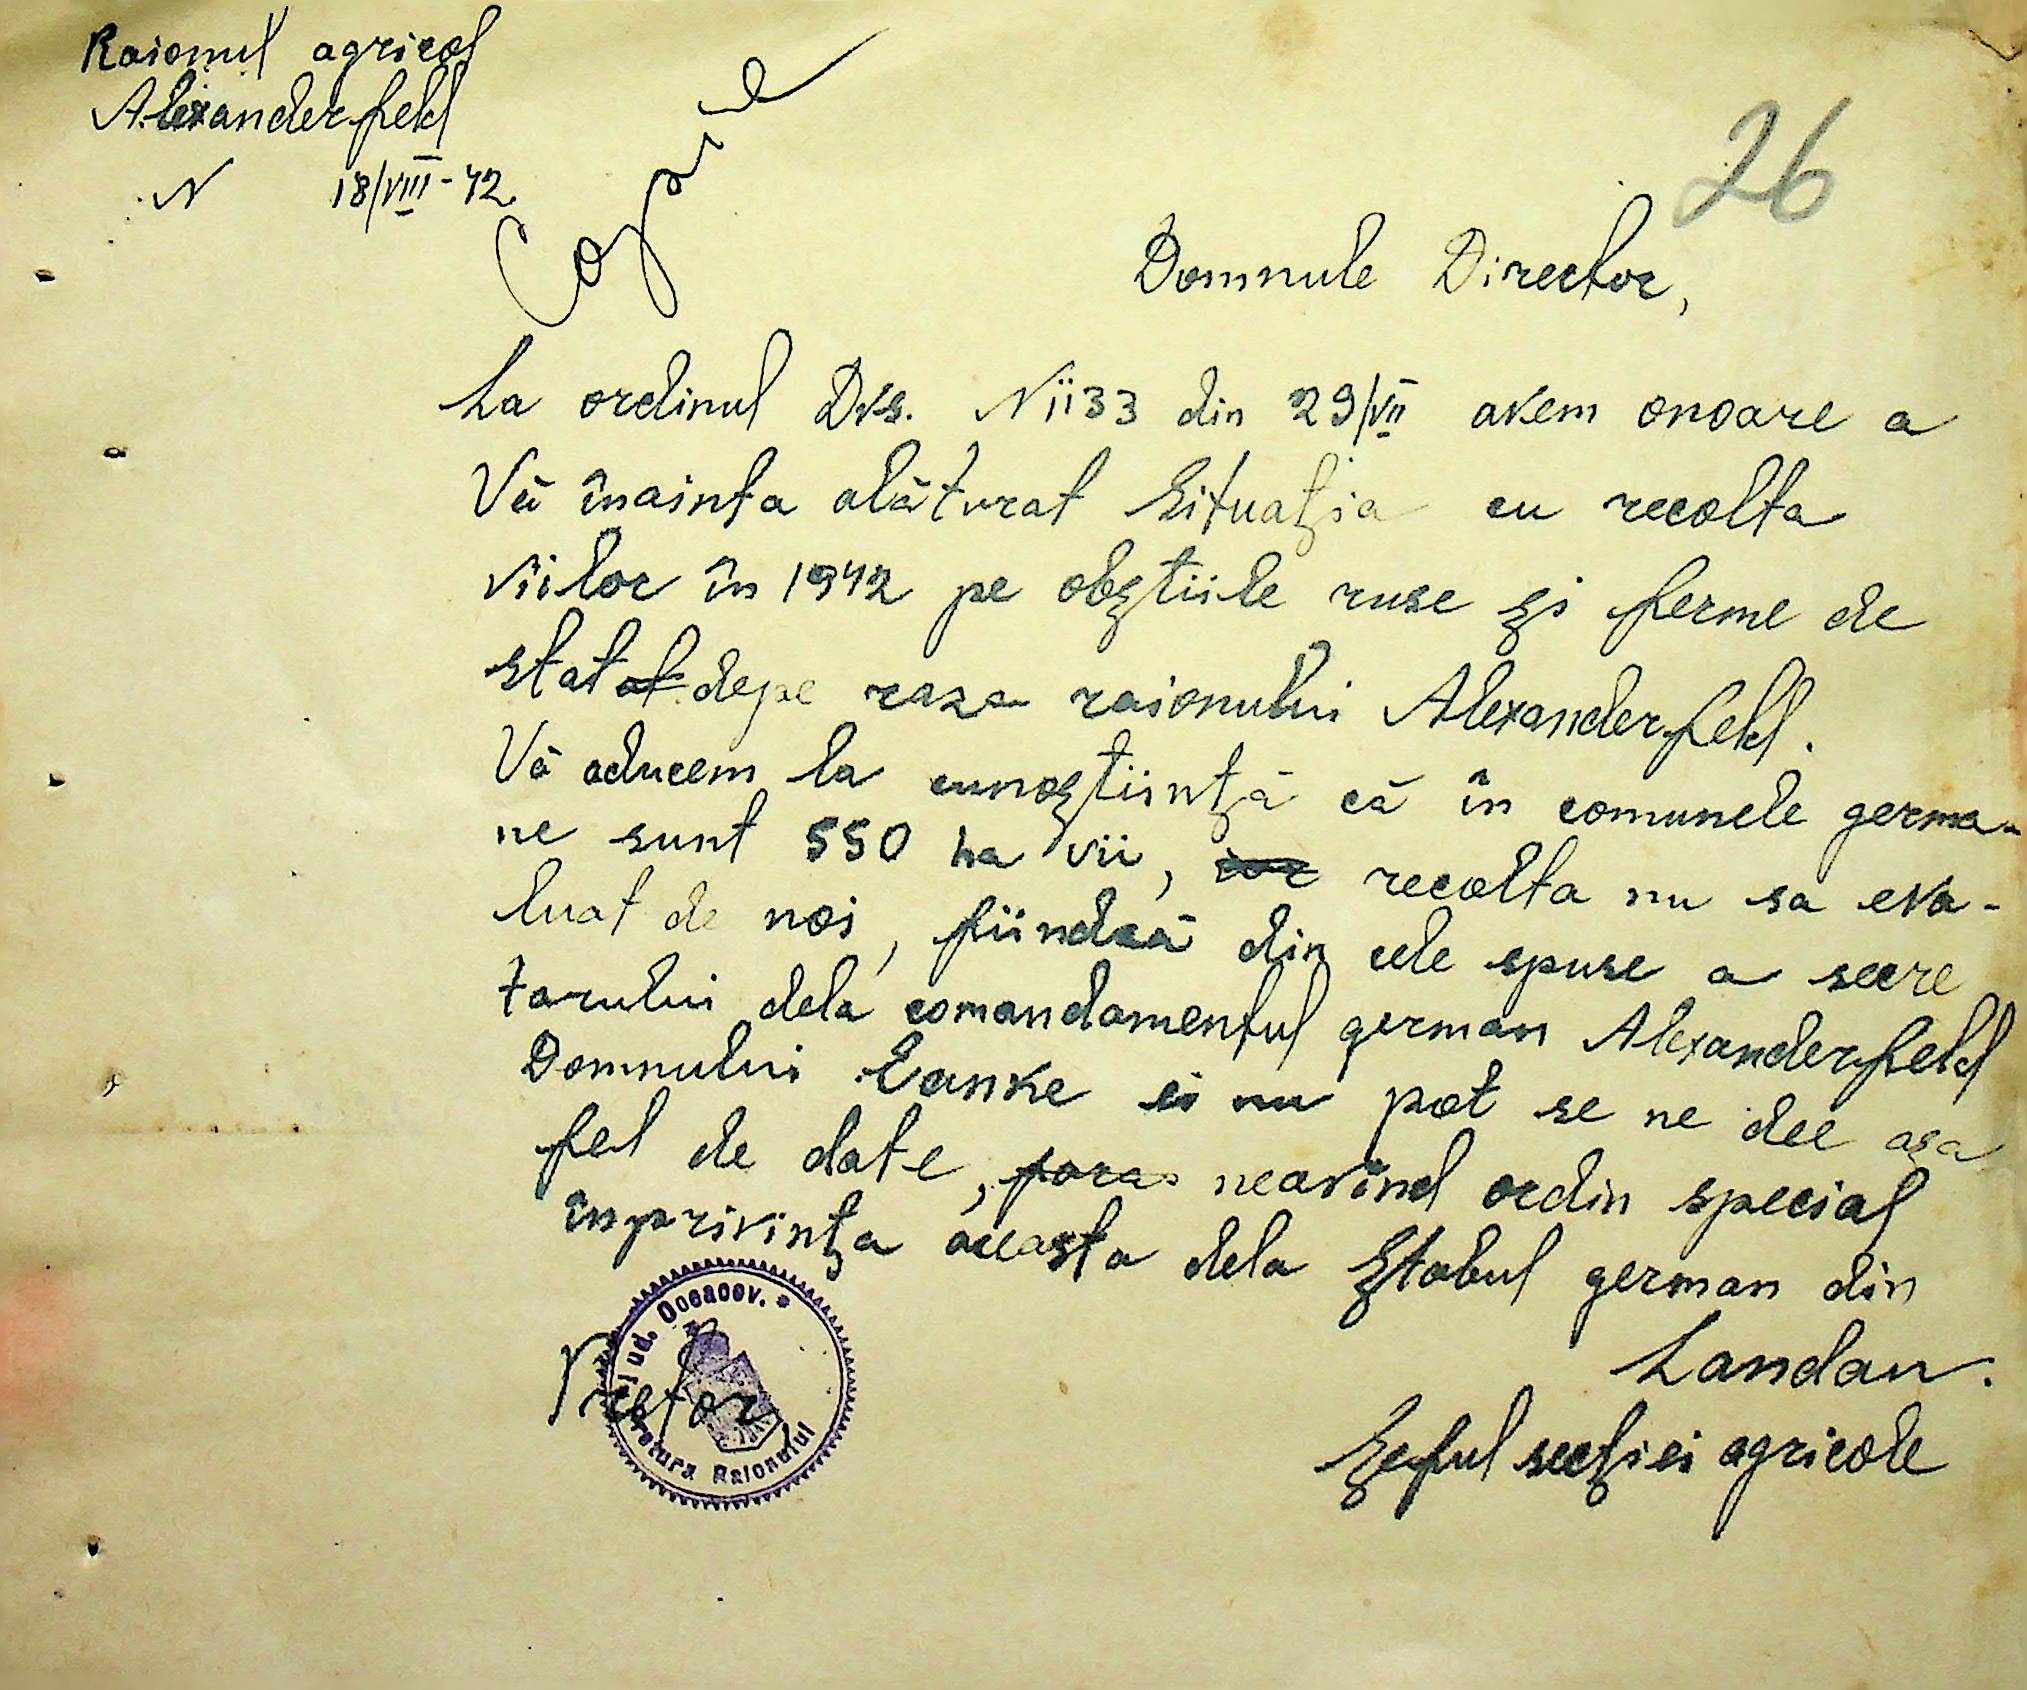 Raionul agricol
Alexanderfeld
N 18/VIII-42
Copie
26
Domnule Director,
La ordinul Dvs. N ii33 din 29/VII avem onoare a
Vă înainta alăturat Situaţia cu recolta
viilor în 1942 pe obştiile ruse şi ferme de
stat depe raza raionului Alexanderfeld.
Vă aducem la cunoştiinţă că în comunele germa-
ne sunt 550 ha vii, recolta nu sa eva-
luat de noi, fiindcă din cele spuse a secre
tarului dela comandamentul german Alexanderfeld
Domnului Eanke ei nu pot se ne dee aşa
fel de date, neavînd ordin special
înprivinţa aceasta dela Ştabul german din
Landau.
Pretor,
Şeful secţiei agricole
Jud. Oceacov. *
Pretura Raionului